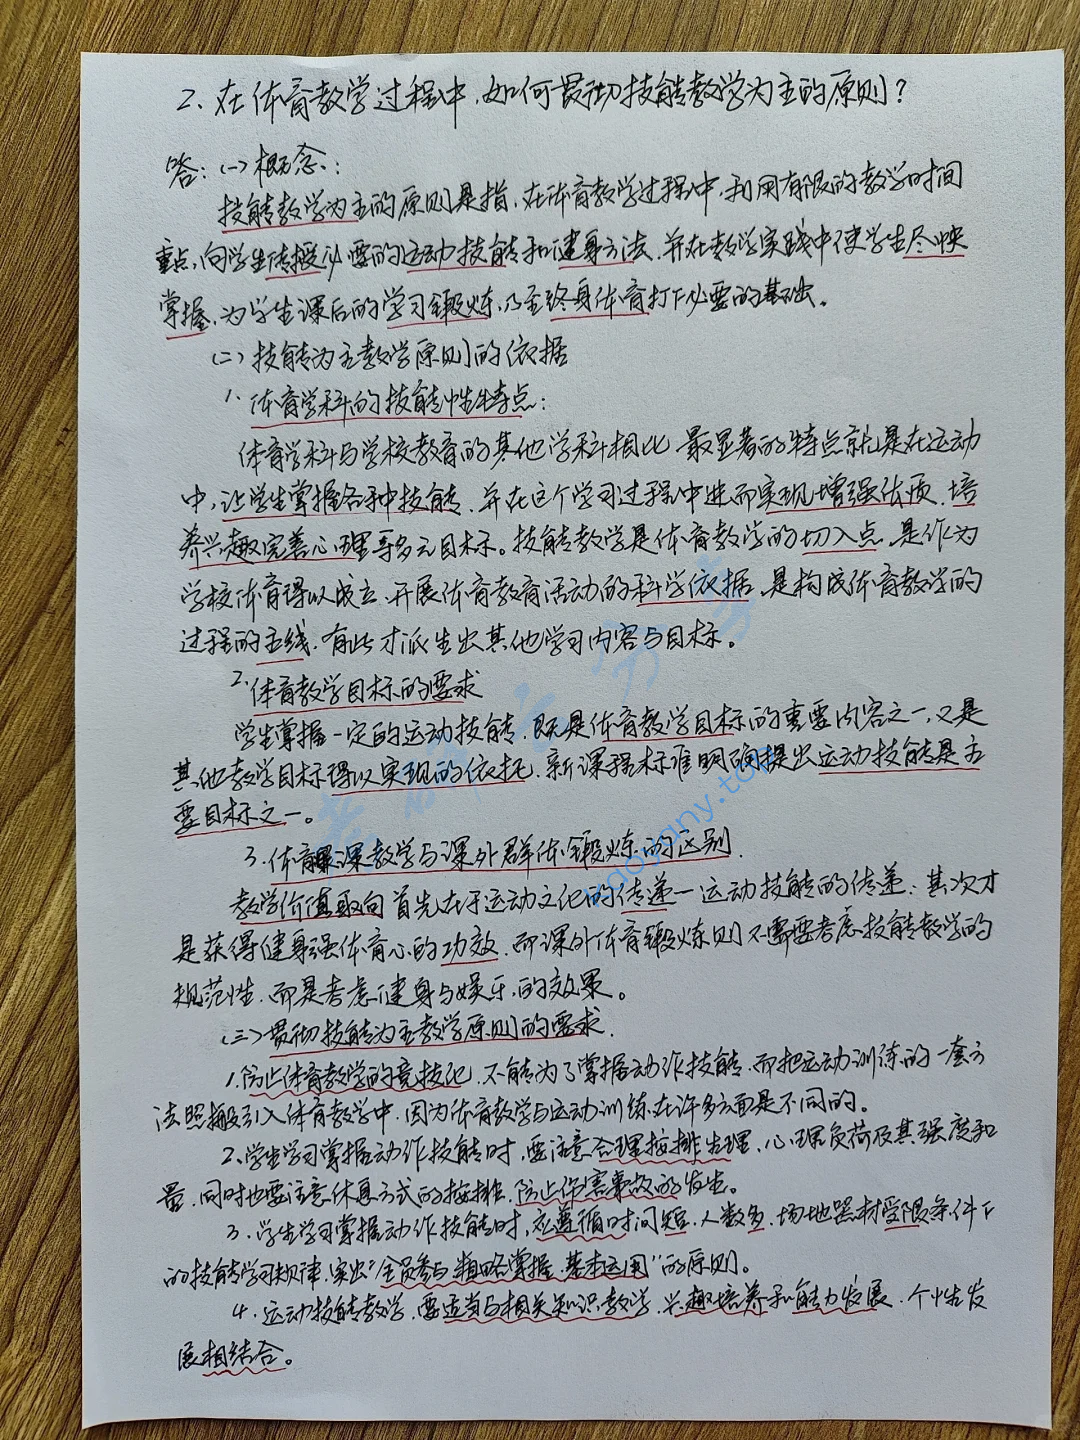 2、在体育教学过程中,如何贯彻技能教学为主的原则?
答:(一)概念:
技能教学为主的原则是指,在体育教学过程中,利用有限的教学时间
重点,向学生传授必要的运动技能和健身方法,并在教学实践中使学生尽快
掌握,为学生课后的学习锻炼,乃至终身体育打下必要的基础。
(二)技能为主教学原则的依据
1.体育学科的技能性特点:
体育学科与学校教育的其他学科相比,最显著的特点就是在运动
中,让学生掌握各种技能,并在这个学习过程中进而实现增强体质,培
养兴趣完善心理等多元目标。技能教学是体育教学的切入点,是作为
学校体育得以成立,开展体育教育活动的科学依据,是构成体育教学的
过程的主线,有此才派生出其他学习内容与目标。
2.体育教学目标的要求
学生掌握一定的运动技能,既是体育教学目标的重要内容之一,又是
其他教学目标得以实现的依托,新课程标准明确提出运动技能是主
要目标之一。
3.体育课教学与课外群体锻炼的区别.
教学价值取向首先在于运动文化的传递—运动技能的传递;其次才
是获得健身强体育心的功效,而课外体育锻炼则不需要考虑技能教学的
规范性,而是考虑健身与娱乐,的效果。
(三)贯彻技能为主教学原则的要求.
1.防止体育教学的竞技化,不能为了掌握动作技能,而把运动训练的一套方
法照搬引入体育教学中,因为体育教学与运动训练在许多方面是不同的。
2、学生学习掌握动作技能时,要注意合理按排生理,心理负荷及其强度和
量,同时也要注意休息方式的按排,防止伤害事故的发生。
3、学生学习掌握动作技能时,应遵循时间短,人数多,场地器材受限条件下
的技能学习规律,突出"全员参与,粗略掌握,基本运用"的原则。
4.运动技能教学,要适当与相关知识教学,兴趣培养和能力发展,个性发
展相结合。
kaoyany.top